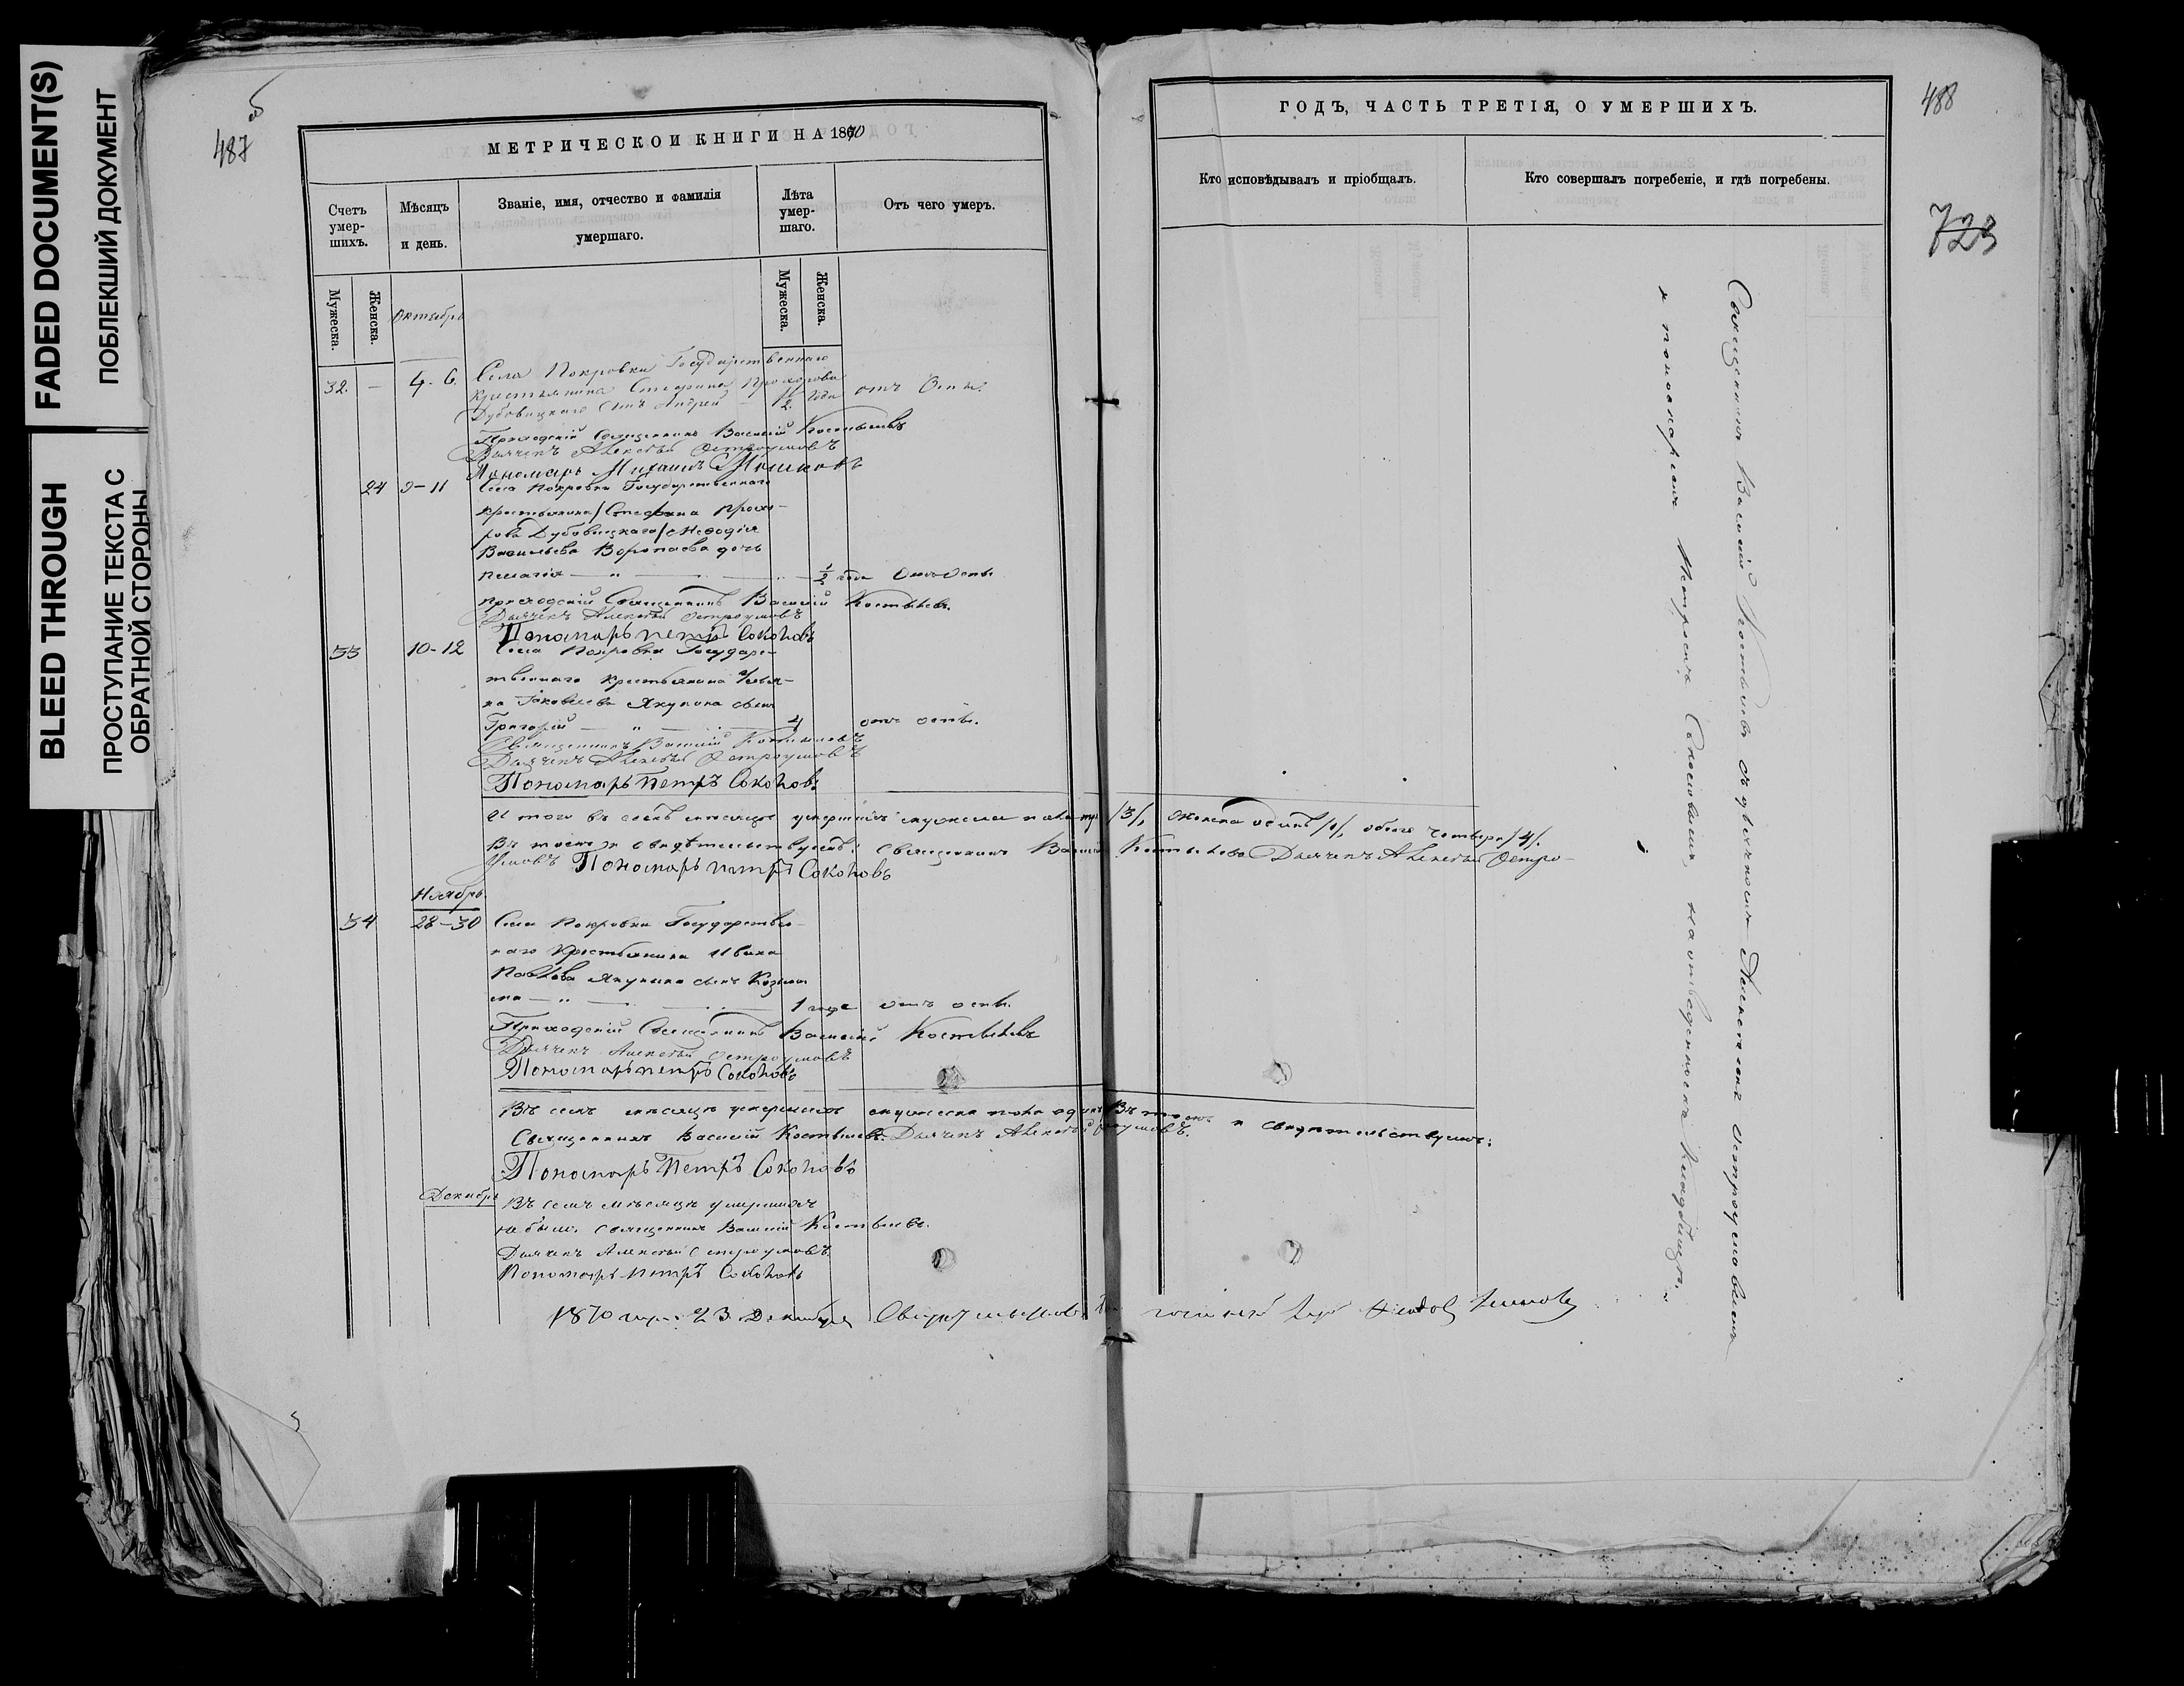 FADED DOCUMENT(S)
ПОБЛЕКШИЙ ДОКУМЕНТ
BLEED THROUGH
ПРОСТУПАНИЕ ТЕКСТА С
ОБРАТНОЙ СТОРОНЫ
487 об
МЕТРИЧЕСКОЙ КНИГИ НА 1870
Счетъ умер-шихъ.
Мѣсяцъ и день.
Званіе, имя, отчество и фамилія умершаго.
Лѣта умер-шаго.
Отъ чего умеръ.
Мужеска.
Женска.
Октябрь
Мужеска.
Женска.
32. — 4. 6. Села Покровки Государственнаго
крестьянина Стефана Прохорова
Дубовицкаго сынъ Андрей 1/2 года отъ Оспы.
Приходскій Священникъ Василій Костылевъ
Дьячекъ Алексѣй Остроумовъ
Пономарь Михаилъ Мошковъ
24 9-11 Села Покровки Государственнаго
крестьянина /Стефана Прохо-
рова Дубовицкаго/ Меѳодія
Васильева Воропаева дочь
Пелагія 1/2 года Отъ Оспы
приходскій Священникъ Василій Костылевъ
Дьячекъ Алексѣй Остроумовъ
Пономарь Петръ Соколовъ
33 10-12 Села Покровки Государс-
твеннаго крестьянина
Іаковлева Якунина сынъ
Григорій 4 отъ оспы.
Священникъ Василій Костылевъ
Дьячекъ Алексѣй Остроумовъ
Пономарь Петръ Соколовъ
И того въ семъ мѣсяцѣ умершихъ мужеска пола три /3/, женска одинъ /1/, обоего четверо /4/.
Въ томъ и свидѣтельствуемъ: Священникъ Василій Костылевъ Дьячекъ Алексѣй Остро-
умовъ Пономарь Петръ Соколовъ
Ноябрь.
34 28-30 Села Покровки Государствен-
наго Крестьянина Ивана
Павлова Якунина сынъ Козьма
1 года отъ оспы.
Приходскій Священникъ Василій Костылевъ
Дьячекъ Алексѣй Остроумовъ
Пономарь Петръ Соколовъ
Въ семъ мѣсяцѣ умершихъ мужеска пола одинъ Въ томъ и свидѣтельствуемъ:
Священникъ Василій Костылевъ. Дьячекъ Алексѣй Остроумовъ.
Пономарь Петръ Соколовъ
Декабрь
Въ семъ мѣсяцѣ умершихъ
не было. Священникъ Василій Костылевъ.
Дьячекъ Алексѣй Остроумовъ
Пономарь Петръ Соколовъ
1870 23 Декабря
488
723
ГОДЪ, ЧАСТЬ ТРЕТІЯ, О УМЕРШИХЪ.
Кто исповѣдывалъ и пріобщалъ.
Кто совершалъ погребеніе, и гдѣ погребены.
Священникъ Василій Костылевъ съ дьячкомъ Алексѣемъ Остроумовымъ
и пономаремъ Петромъ Соколовымъ, на отведенномъ кладбищѣ.